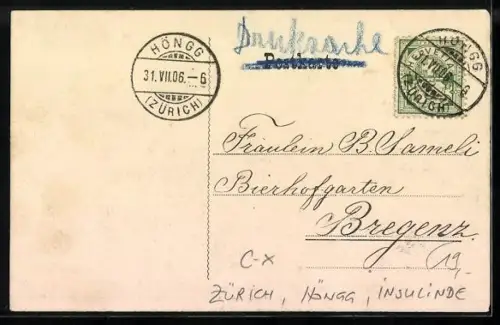 HÖNGG
31.VII.06.–6
(ZÜRICH)
Drucksache
Postkarte
HÖNGG
31.VII.06.
(ZÜRICH)
Fräulein B. Sameli
Bierhofgarten
Bregenz.
C-X
19,-
ZÜRICH, HÖNGG, INSULINDE